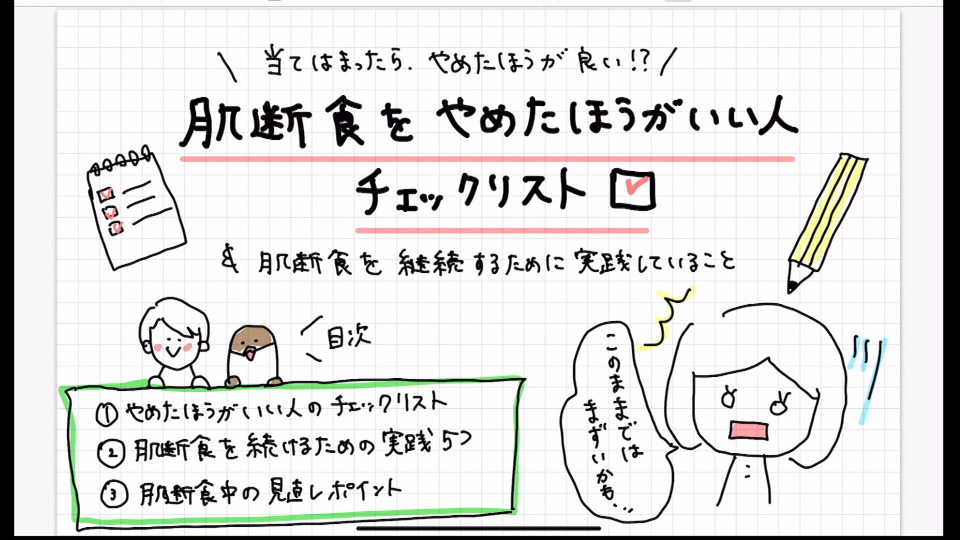 \ 当てはまったら、やめたほうが良い!? /
肌断食をやめたほうがいい人
チェックリスト
& 肌断食を継続するために実践していること
目次
① やめたほうがいい人のチェックリスト
② 肌断食を続けるための実践5つ
③ 肌断食中の見直しポイント
このままでは
まずいかも...